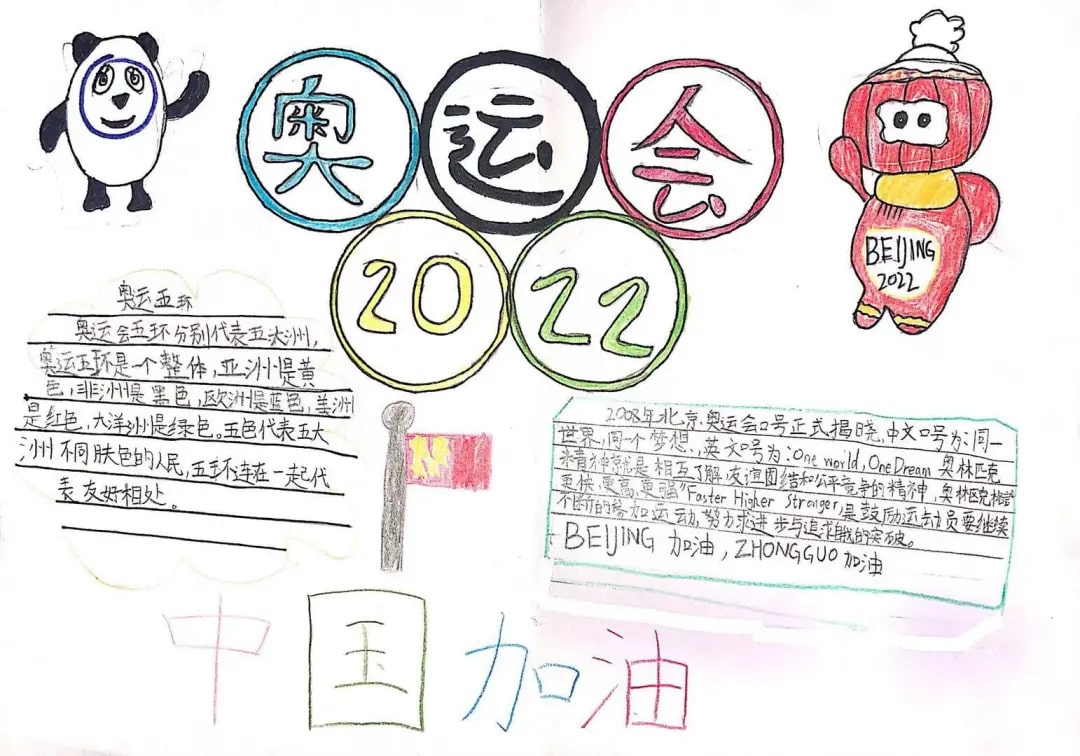 奥运会
2022
BEIJING
2022
奥运五环
奥运会五环分别代表五大洲,
奥运五环是一个整体,亚洲是黄
色,非洲是黑色,欧洲是蓝色,美洲
是红色,大洋洲是绿色。五色代表五大
洲不同肤色的人民,五环连在一起代
表友好相处。
2008年北京奥运会口号正式揭晓,中文口号为:同一
世界,同一个梦想,英文口号为:One world, One Dream 奥林匹克
精神就是相互了解友谊团结和公平竞争的精神,奥林匹克格言
更快、更高、更强"Faster Higher Stronger,是鼓励运动员要继续
不断的参加运动,努力求进步与追求自我的突破。
BEIJING 加油,ZHONGGUO 加油
中国加油